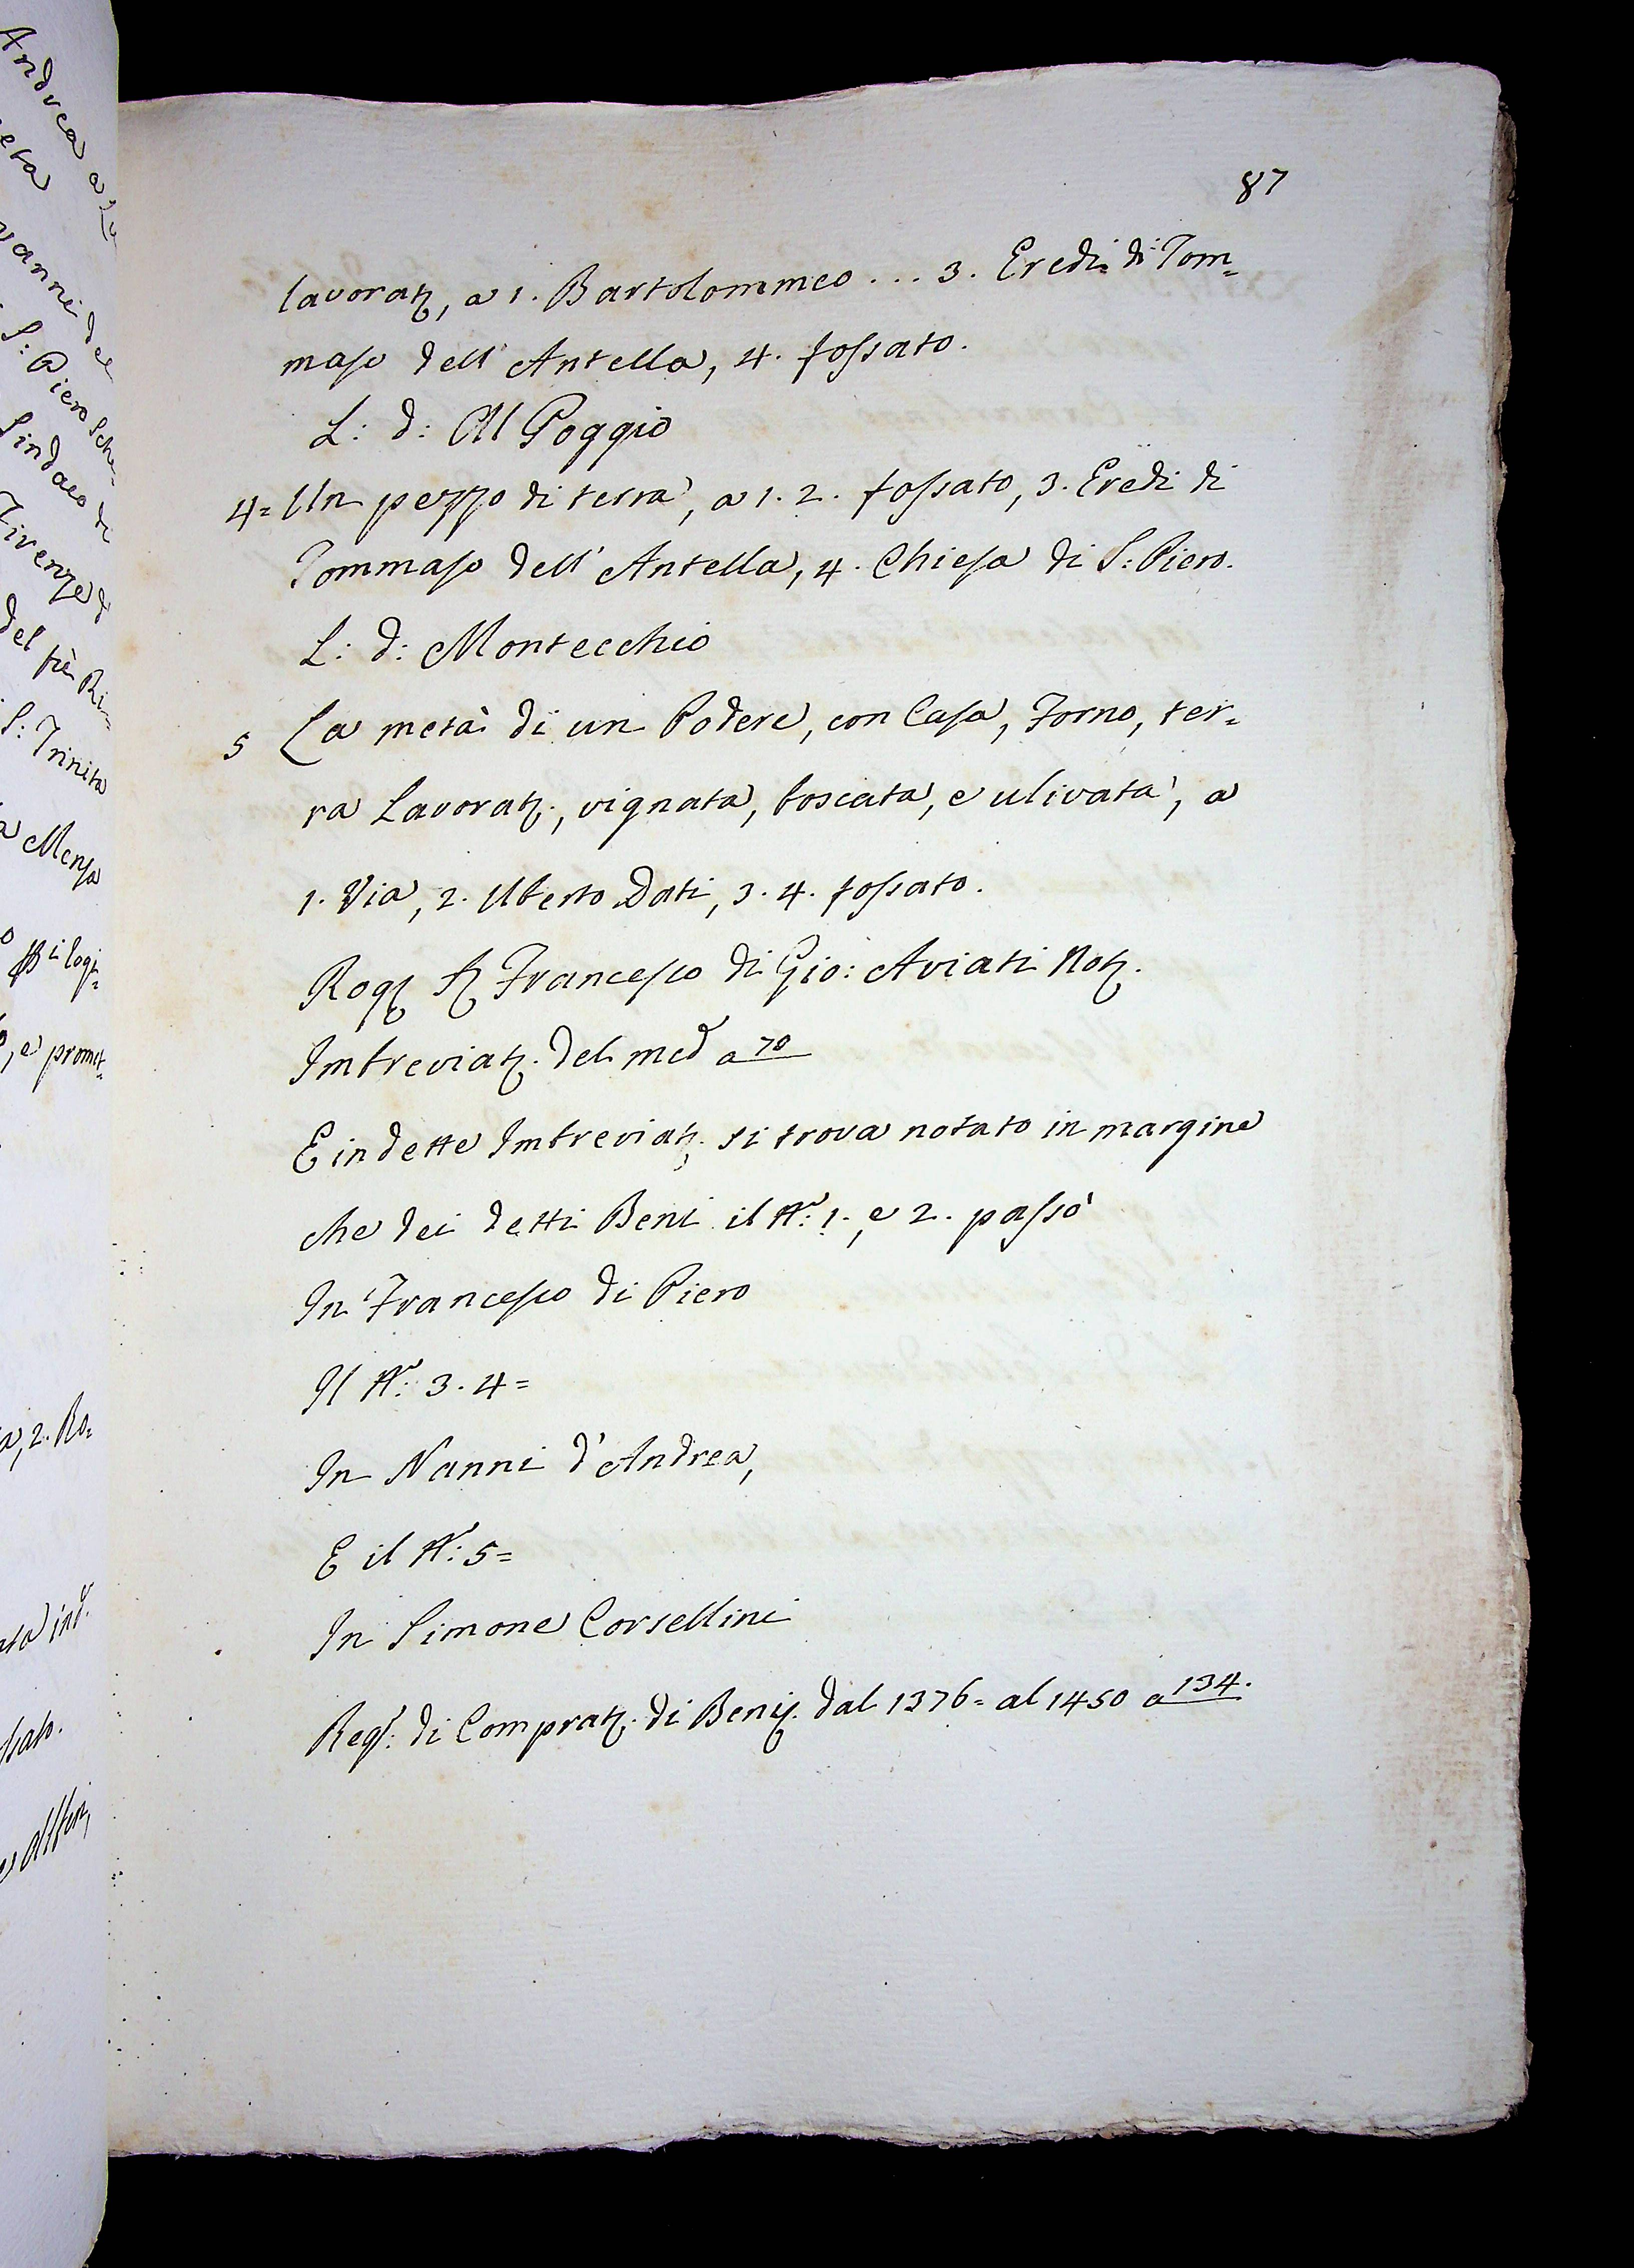 87
lavorat., a 1. Bartolommeo ... 3. Eredi di Tom=
maso dell' Antella, 4. fossato.
L: d: Al Poggio
4= Un pezzo di terra, a 1. 2. fossato, 3. Eredi di
Tommaso dell' Antella, 4. Chiesa di S: Piero.
L: d: Montecchio
5 La metà di un Podere, con Casa, Forno, ter=
ra Lavorat., vignata, boscata, e ulivata, a
1. Via, 2. Uberto Dati, 3. 4. fossato.
Rog. Francesco di Gio: Aviati Not.
Imbreviat. del med a 70
E in dette Imbreviat. si trova notato in margine
che dei detti Beni il N.º: 1., e 2. passò
In Francesco di Piero
Il N.º: 3. 4=
In Nanni d'Andrea,
E il N.º: 5=
In Simone Corsellini
Reg: di Comprat. di Beni. dal 1376= al 1450 a 134.